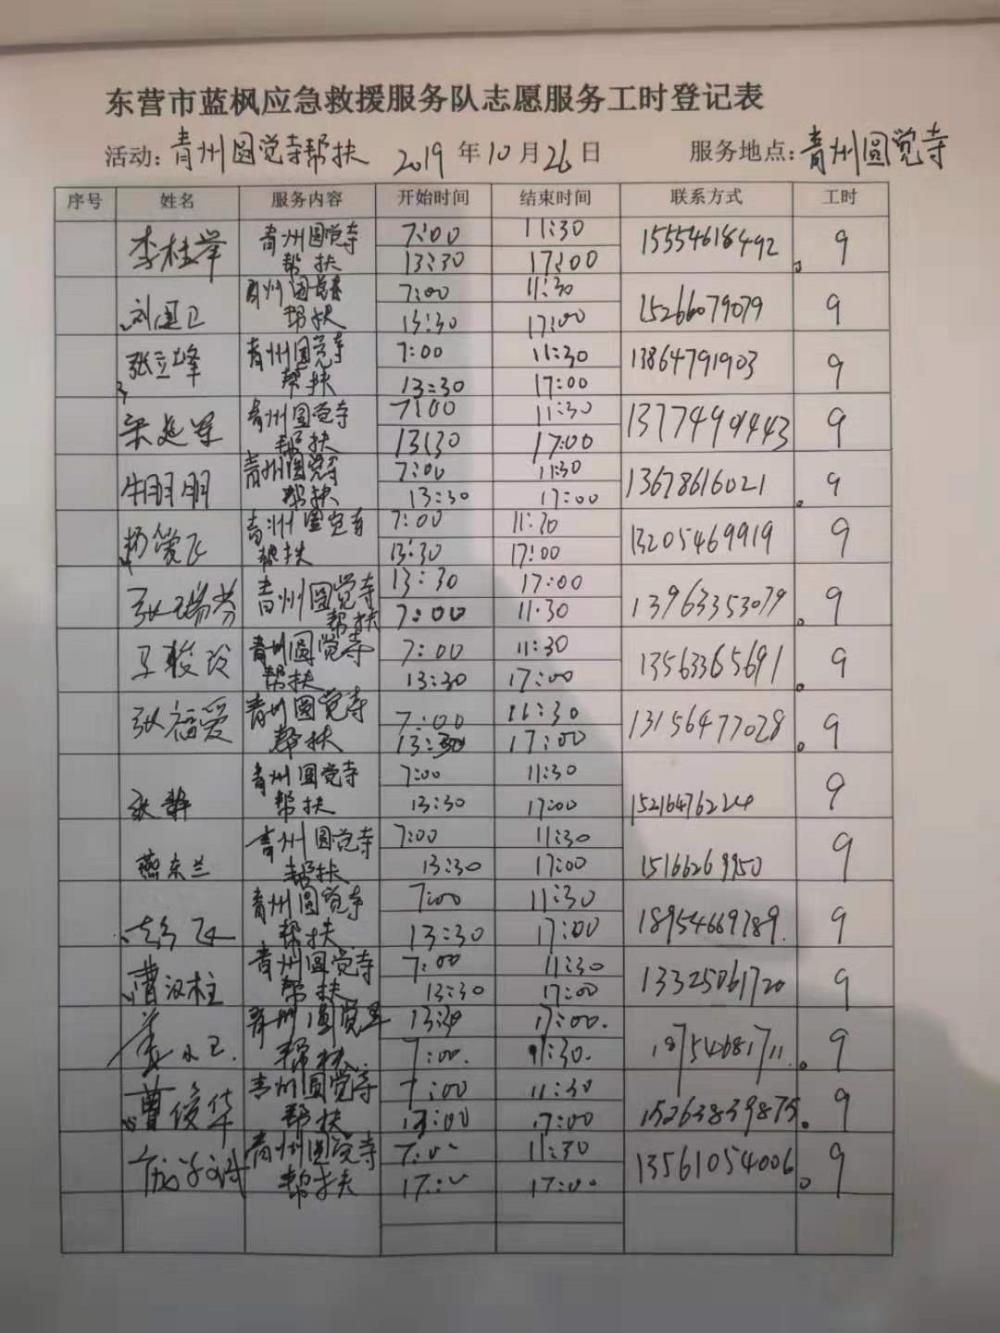 东营市蓝枫应急救援服务队志愿服务工时登记表
活动：青州圆觉寺帮扶 2019 年 10 月 26 日 服务地点：青州圆觉寺
序号 姓名 服务内容 开始时间 结束时间 联系方式 工时
李桂举 青州圆觉寺帮扶 7:00 11:30 15554618492 9
13:30 17:00
刘国卫 帮扶 7:00 11:30 15266079079 9
13:30 17:00
张立峰 青州圆觉寺帮扶 7:00 11:30 13864791903 9
13:30 17:00
宋延军 青州圆觉寺帮扶 7:00 11:30 9
13:30 17:00
牛明明 青州圆觉寺帮扶 7:00 11:30 13678616021 9
13:30 17:00
青州圆觉寺帮扶 7:00 11:30 13205469919 9
13:30 17:00
张瑞芬 青州圆觉寺帮扶 13:30 17:00 13963353079 9
7:00 11:30
青州圆觉寺帮扶 7:00 11:30 13563365691 9
13:30 17:00
张福爱 青州圆觉寺帮扶 7:00 11:30 13156477028 9
13:30 17:00
张静 青州圆觉寺帮扶 7:00 11:30 15216476224 9
13:30 17:00
燕东兰 青州圆觉寺帮扶 7:00 11:30 15166269950 9
13:30 17:00
青州圆觉寺帮扶 7:00 11:30 18954669789. 9
13:30 17:00
曹汉柱 青州圆觉寺帮扶 7:00 11:30 13325061720 9
13:30 17:00
青州圆觉寺帮扶 13:30 17:00. 18754681711. 9
7:00. 11:30.
曹俊华 青州圆觉寺帮扶 7:00 11:30 15263839875 9
13:00 17:00
青州圆觉寺帮扶 7:00 11:30 13561054006 9
17:00 17:00